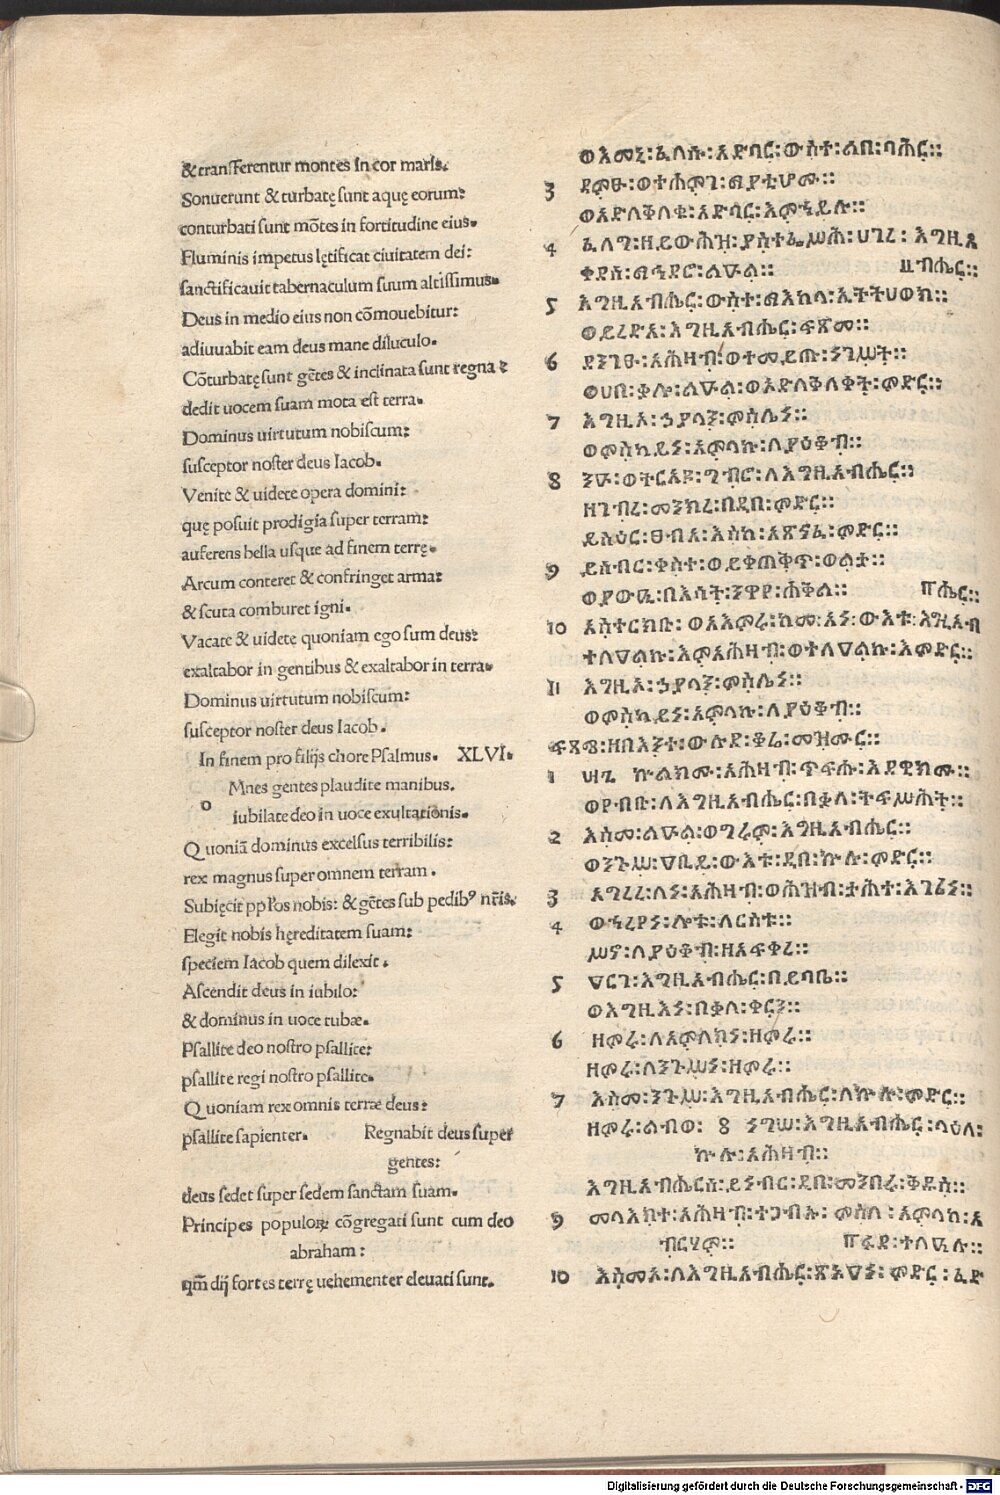 & transferentur montes in cor maris.
Sonuerunt & turbatę sunt aquę eorum:
conturbati sunt mōtes in fortitudine eius.
Fluminis impetus lętificat ciuitatem dei:
sanctificauit tabernaculum suum altissimus.
Deus in medio eius non cōmouebitur:
adiuuabit eam deus mane diluculo.
Cōturbatę sunt gētes & inclinata sunt regna:
dedit uocem suam mota est terra.
Dominus uirtutum nobiscum:
susceptor noster deus Iacob.
Venite & uidete opera domini:
quę posuit prodigia super terram:
auferens bella usque ad finem terrę.
Arcum conteret & confringet arma:
& scuta comburet igni.
Vacate & uidete quoniam ego sum deus:
exaltabor in gentibus & exaltabor in terra.
Dominus uirtutum nobiscum:
susceptor noster deus Iacob.
In finem pro filijs chore Psalmus. XLVI.
oMnes gentes plaudite manibus.
iubilate deo in uoce exultationis.
Quoniā dominus excelsus terribilis:
rex magnus super omnem terram.
Subięcit ppłos nobis: & gētes sub pedib⁹ nr̄is.
Elegit nobis hęreditatem suam:
speciem Iacob quem dilexit.
Ascendit deus in iubilo:
& dominus in uoce tubæ.
Psallite deo nostro psallite:
psallite regi nostro psallite.
Quoniam rex omnis terræ deus:
psallite sapienter. Regnabit deus super
gentes:
deus sedet super sedem sanctam suam.
Principes populoꝝ cōgregati sunt cum deo
abraham:
qm̄ dij fortes terrę uehementer eleuati sunt.
ወእመኒ፡ፈለሱ፡አድባር፡ውስተ፡ልበ፡ባሕር፡፡
3 ደምፁ፡ወተሐምጉ፡ማያቲሆሙ፡፡
ወአድለቅለቁ፡አድባር፡እምኃይሉ፡፡
4 ፈለግ፡ዘይውሕዝ፡ያስተፌሥሕ፡ሀገረ፡እግዚአ
ቀደሰ፡ማኅደሮ፡ልዑል፡፡ ብሔር፡፡
5 እግዚአብሔር፡ውስተ፡ማእከላ፡ኢትትሀወክ፡፡
ወይረድአ፡እግዚአብሔር፡ፍጽመ፡፡
6 ደንገፁ፡አሕዛብ፡ወተመይጡ፡ነገሥት፡፡
ወሀበ፡ቃሉ፡ልዑል፡ወአድለቅለቀት፡ምድር፡፡
7 እግዚአ፡ኃያላን፡ምስሌነ፡፡
ወምስካይነ፡አምላኩ፡ለያዕቆብ፡፡
8 ንዑ፡ወትርአዩ፡ግብሮ፡ለእግዚአብሔር፡፡
ዘገብረ፡መንክረ፡በዲበ፡ምድር፡፡
ይስዕር፡ፀብአ፡እስከ፡አጽናፈ፡ምድር፡፡
9 ይሰብር፡ቀስተ፡ወይቀጠቅጥ፡ወልታ፡፡
ወያውዒ፡በእሳት፡ንዋየ፡ሐቅል፡፡ ሔር፡፡
10 አስተርክቡ፡ወአእምሩ፡ከመ፡አነ፡ውእቱ፡እግዚአብ
ተለዐልኩ፡እምአሕዛብ፡ወተለዐልኩ፡እምድር፡፡
11 እግዚአ፡ኃያላን፡ምስሌነ፡፡
ወምስካይነ፡አምላኩ፡ለያዕቆብ፡፡
ፍጻሜ፡ዘበእንተ፡ውሉደ፡ቆሬ፡መዝሙር፡፡
1 ኵልክሙ፡አሕዛብ፡ጥፍሑ፡እደዊክሙ፡፡
ወየብቡ፡ለእግዚአብሔር፡በቃለ፡ትፍሥሕት፡፡
2 እስመ፡ልዑል፡ወግሩም፡እግዚአብሔር፡፡
ወንጉሥ፡ዐቢይ፡ውእቱ፡ዲበ፡ኵሉ፡ምድር፡፡
3 አግረረ፡ለነ፡አሕዛብ፡ወሕዝብ፡ታሕተ፡እገሪነ፡፡
4 ወኀረየነ፡ሎቱ፡ለርስቱ፡፡
ሥነ፡ለያዕቆብ፡ዘአፍቀረ፡፡
5 ዐርገ፡እግዚአብሔር፡በይባቤ፡፡
ወእግዚእነ፡በቃለ፡ቀርን፡፡
6 ዘምሩ፡ለአምላክነ፡ዘምሩ፡፡
ዘምሩ፡ለንጉሥነ፡ዘምሩ፡፡
7 እስመ፡ንጉሥ፡እግዚአብሔር፡ለኵሉ፡ምድር፡፡
ዘምሩ፡ልብወ፡ 8 ነግሠ፡እግዚአብሔር፡ላዕለ፡
ኵሉ፡አሕዛብ፡፡
እግዚአብሔርሰ፡ይነብር፡ዲበ፡መንበረ፡ቅዱስ፡፡
9 መላእክተ፡አሕዛብ፡ተጋብኡ፡ምስለ፡አምላከ፡አ
ብርሃም፡፡ ተለዐሉ፡፡
10 እስመ፡ለእግዚአብሔር፡ጽኑዓነ፡ምድር፡ፈድ
Digitalisierung gefördert durch die Deutsche Forschungsgemeinschaft - DFG